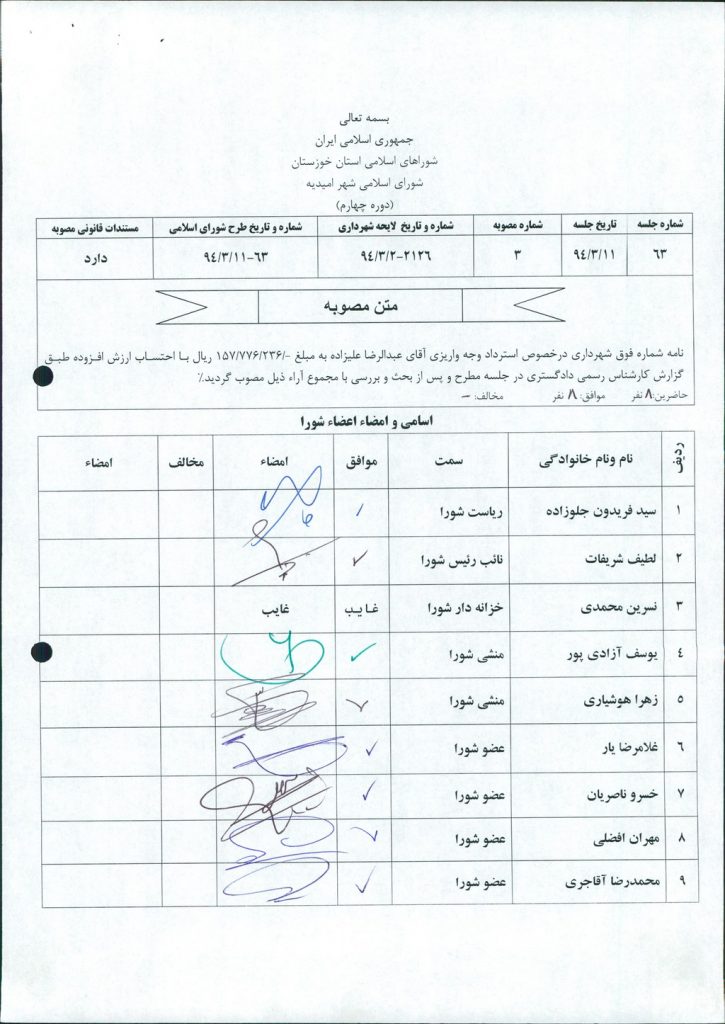 بسمه تعالی
جمهوری اسلامی ایران
شوراهای اسلامی استان خوزستان
شورای اسلامی شهر امیدیه
(دوره چهارم)
شماره جلسه تاریخ جلسه شماره مصوبه شماره و تاریخ لایحه شهرداری شماره و تاریخ طرح شورای اسلامی مستندات قانونی مصوبه
۶۳ ۹٤/۳/۱۱ ۳ ۹٤/۳/۲-۲۱۲۶ ۹٤/۳/۱۱-۶۳ دارد
متن مصوبه
نامه شماره فوق شهرداری درخصوص استرداد وجه واریزی آقای عبدالرضا علیزاده به مبلغ -/۱۵۷/۷۷۶/۲۳۶ ریال با احتساب ارزش افزوده طبق
گزارش کارشناس رسمی دادگستری در جلسه مطرح و پس از بحث و بررسی با مجموع آراء ذیل مصوب گردید.٪
حاضرین: ۸ نفر موافق: ۸ نفر مخالف: –
اسامی و امضاء اعضاء شورا
ردیف نام ونام خانوادگی سمت موافق امضاء مخالف امضاء
۱ سید فریدون جلوزاده ریاست شورا
۲ لطیف شریفات نائب رئیس شورا ✓
۳ نسرین محمدی خزانه دار شورا غایب غایب
٤ یوسف آزادی پور منشی شورا ✓
۵ زهرا هوشیاری منشی شورا ✓
۶ غلامرضا یار عضو شورا ✓
۷ خسرو ناصریان عضو شورا ✓
۸ مهران افضلی عضو شورا ✓
۹ محمدرضا آقاجری عضو شورا ✓